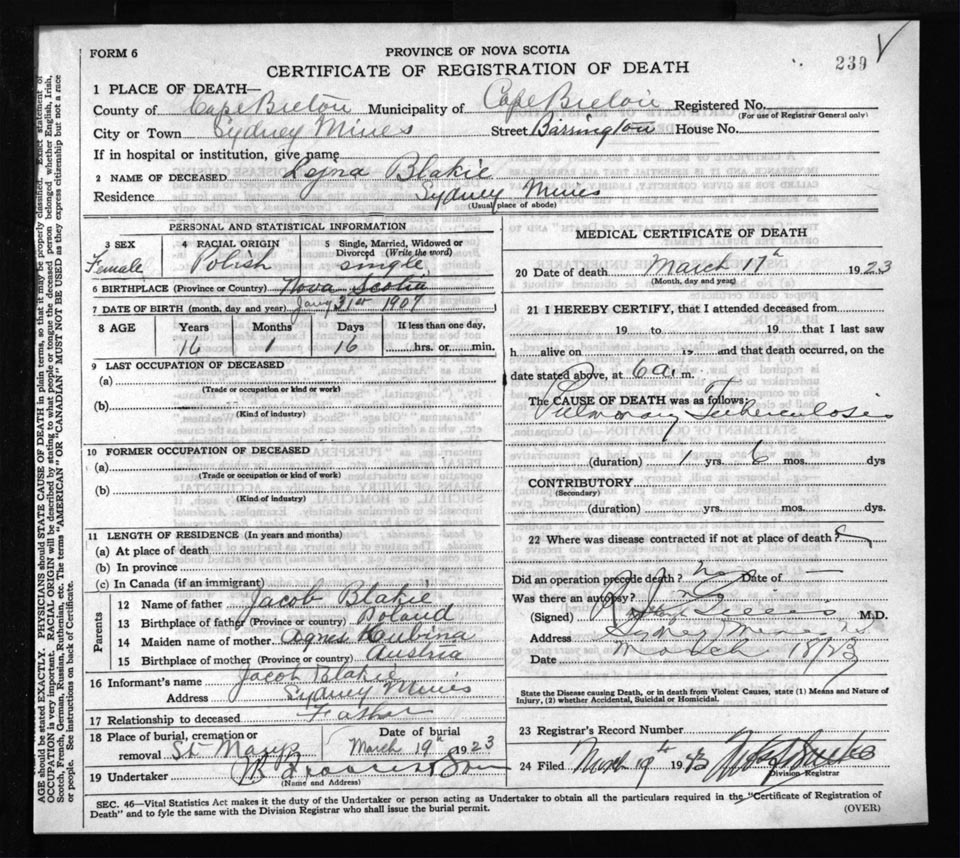 239
FORM 6
PROVINCE OF NOVA SCOTIA
CERTIFICATE OF REGISTRATION OF DEATH
1 PLACE OF DEATH—
County of Cape Breton Municipality of Cape Breton Registered No.
(For use of Registrar General only)
City or Town Sydney Mines Street Barrington House No.
If in hospital or institution, give name
2 NAME OF DECEASED Blakie
Residence Sydney Mines
(Usual place of abode)
PERSONAL AND STATISTICAL INFORMATION
3 SEX 4 RACIAL ORIGIN 5 Single, Married, Widowed or Divorced (Write the word)
Female Polish single
6 BIRTHPLACE (Province or Country) Nova Scotia
7 DATE OF BIRTH (month, day and year) Jany 31st 1907
8 AGE Years Months Days If less than one day,
16 1 16 hrs. or min.
9 LAST OCCUPATION OF DECEASED
(a)
(Trade or occupation or kind or work)
(b)
(Kind of industry)
10 FORMER OCCUPATION OF DECEASED
(a)
(Trade or occupation or kind of work)
(b)
(Kind of industry)
11 LENGTH OF RESIDENCE (In years and months)
(a) At place of death
(b) In province
(c) In Canada (if an immigrant)
Parents
12 Name of father Jacob Blakie
13 Birthplace of father (Province or country) Poland
14 Maiden name of mother Agnes
15 Birthplace of mother (Province or country) Austria
16 Informant's name Jacob Blakie
Address Sydney Mines
17 Relationship to deceased Father
18 Place of burial, cremation or removal St Marys
Date of burial
March 19th 1923
19 Undertaker
(Name and Address)
MEDICAL CERTIFICATE OF DEATH
20 Date of death March 17th 1923
(Month, day and year)
21 I HEREBY CERTIFY, that I attended deceased from
19 to 19 that I last saw
h alive on 19 and that death occurred, on the
date stated above, at 6 a. m.
The CAUSE OF DEATH was as follows:
Pulmonary Tuberculosis
(duration) 1 yrs. 6 mos. dys
CONTRIBUTORY
(Secondary)
(duration) yrs. mos. dys.
22 Where was disease contracted if not at place of death?
Did an operation precede death? no Date of —
Was there an autopsy? no
(Signed) M.D.
Address Sydney Mines
Date March 18/23
State the Disease causing Death, or in death from Violent Causes, state (1) Means and Nature of
Injury, (2) whether Accidental, Suicidal or Homicidal.
23 Registrar's Record Number
24 Filed March 19 1923
Division Registrar
SEC. 46—Vital Statistics Act makes it the duty of the Undertaker or person acting as Undertaker to obtain all the particulars required in the "Certificate of Registration of
Death" and to fyle the same with the Division Registrar who shall issue the burial permit.
(OVER)
AGE should be stated EXACTLY. PHYSICIANS should STATE CAUSE OF DEATH in plain terms, so that it may be properly classified. Exact statement of
OCCUPATION is very important. RACIAL ORIGIN will be described by stating to what people or tongue the deceased person belonged whether English, Irish,
Scotch, French, German, Russian, Ruthenian, etc. The terms "AMERICAN" OR "CANADIAN" MUST NOT BE USED as they express citizenship but not a race
or people. See instructions on back of Certificate.